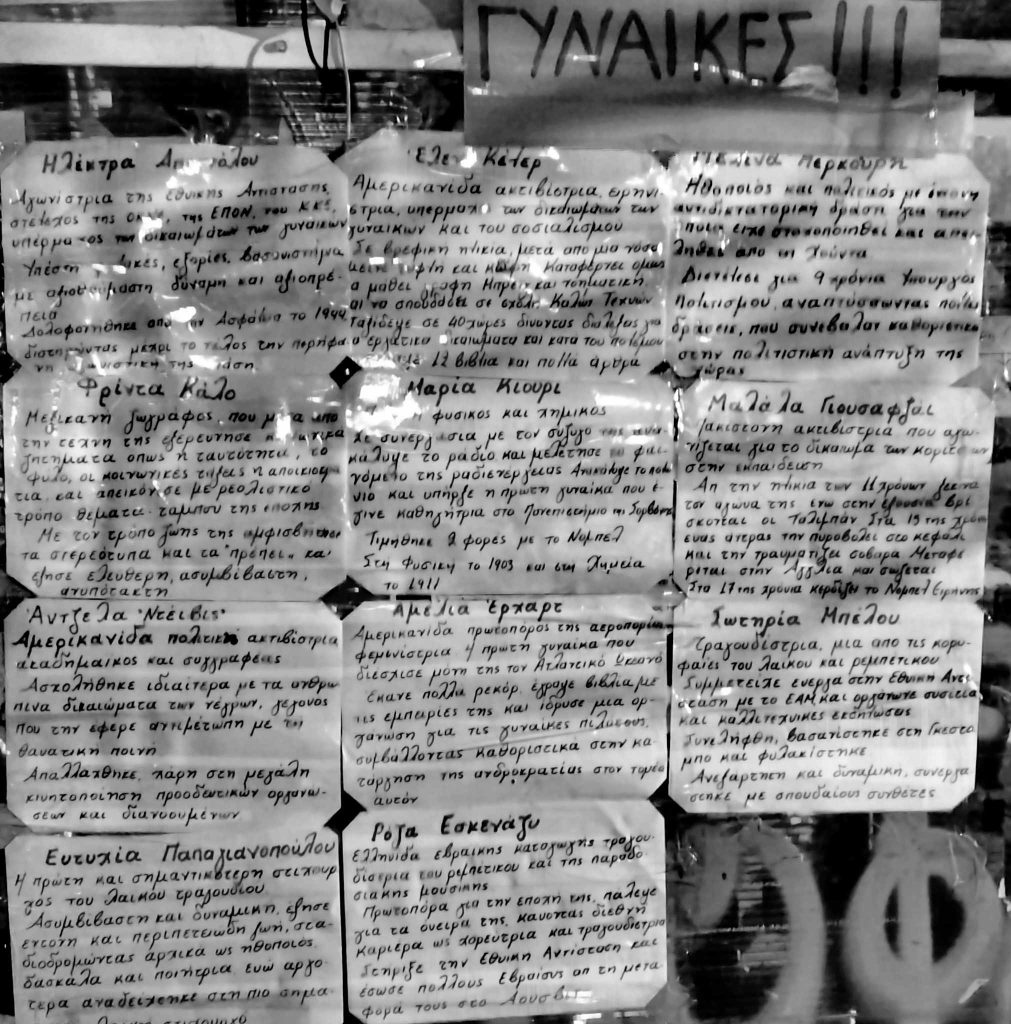 ΓΥΝΑΙΚΕΣ !!!
Ηλέκτρα Αποστόλου
Αγωνίστρια της Εθνικης Αντιστασης,
στέλεχος της ΟΚΝΕ, της ΕΠΟΝ, του ΚΚΕ,
υπέρμαχος των δικαιωμάτων των γυναικών
Υπέστη εξορίες, βασανιστήρια
με αξιοθαύμαστη δύναμη και αξιοπρέ-
πεια
Δολοφονήθηκε από την Ασφάλεια το 1944
διατηρώντας μέχρι το τέλος την περήφα
νη αγωνιστική της στάση
Έλεν Κέλερ
Αμερικανίδα ακτιβίστρια, ειρηνι-
στρια, υπερμαχο των δικαιωμάτων των
γυναικων και του σοσιαλισμου
Σε βρεφική ηλικια, μετά απο μια νοσο
μεινε τυφλη και κωφη. Καταφερτει ομως
α μαθει γραφη Μπρειγ και νοηματικη,
αι να σπουδάσει σε σχολη Καλων Τεχνων
Ταξιδεψε σε 40 χωρες δινοντας διαλεξεις για
α εργατικα δικαιωματα και κατα του πολεμου
12 βιβλια και πολλα αρθρα
Μελίνα Μερκούρη
Ηθοποιός και πολιτικός με έντονη
αντιδικτατορικη δραση για την
οποια ειχε στοχοποιηθει και απε-
ληθει απο τη Χουντα
Διετέλεσε για 9 χρόνια Υπουργος
Πολιτισμου, αναπτυσσωντας πολλες
δράσεις, που συνεβαλαν καθοριστικα
στην πολιτιστικη ανάπτυξη της
χώρας
Φρίντα Κάλο
Μεξικανη ζωγραφος, που μεσα απο
την τεχνη της εξερευνησε κοινωνικα
ζητηματα οπως η ταυτότητα, το
φυλο, οι κοινωνικες ταξεις η αποικιοκρα
τια, και απεικόνισε με ρεαλιστικό
τρόπο θέματα-ταμπου της εποχης
Με τον τρόπο ζωης της αμφισβητησε
τα στερεότυπα και τα "πρέπει" και
εζησε ελευθερη, ασυμβίβαστη,
ανυπότακτη
Μαρία Κιουρι
Η φυσικος και χημικος
Σε συνεργασια με τον συζυγο της ανα-
κάλυψε το ραδιο και μελετησε το φαι-
νόμενο της ραδιενεργειας Ανακάλυψε το πολω
νιο και υπηρξε η πρωτη γυναικα που έ-
γινε καθηγήτρια στο Πανεπιστήμιο της Σορβόνης
Τιμήθηκε 2 φορες με το Νομπελ
Στη Φυσικη το 1903 και στη Χημεία
το 1911
Μαλάλα Γιουσαφζάι
Πακιστανη ακτιβιστρια που αγω-
νιζεται για το δικαιωμα των κοριτσιων
στην εκπαιδευση
Απ την ηλικια των 11 χρονων ξεκινα
τον αγωνα της ενω στην εξουσια βρι
σκονται οι Ταλιμπαν Στα 15 της χρονια
ενας αντρας την πυροβολει στο κεφαλι
και την τραυματιζει σοβαρα Μεταφε
ρεται στην Αγγλια και σωζεται
Στα 17 της χρονια κερδιζει το Νομπελ Ειρηνης
Άντζελα Ντέιβις
Αμερικανίδα πολιτικη ακτιβίστρια
ακαδημαικος και συγγραφέας
Ασχολήθηκε ιδιαίτερα με τα ανθρω
πινα δικαιώματα των νέγρων, γεγονος
που την εφερε αντιμέτωπη με τη
θανατικη ποινή
Απαλλαχθηκε, χαρη στη μεγάλη
κινητοποίηση προοδευτικων οργανω-
σεων και διανοουμένων
Αμέλια Έρχαρτ
Αμερικανιδα πρωτοπόρος της αεροπορίας
φεμινίστρια Η πρώτη γυναίκα που
διέσχισε μόνη της τον Ατλαντικό Ωκεανό
Έκανε πολλα ρεκόρ, έγραψε βιβλια με
τις εμπειρίες της και ίδρυσε μια ορ-
γάνωση για τις γυναίκες πιλότους,
συμβάλλοντας καθοριστικα στην κα-
τάργηση της ανδροκρατίας στον τομέα
αυτόν
Σωτηρία Μπέλου
Τραγουδίστρια, μια απο τις κορυ-
φαίες του λαικου και ρεμπετικου
Συμμετείχε ενεργα στην Εθνικη Αντι
σταση με το ΕΑΜ και οργάνωνε συσιτια
και καλλιτεχνικες εκδηλωσεις
Συνελήφθη, βασανίστηκε στη Γκεστα
μπο και φυλακίστηκε
Ανεξάρτητη και δυναμικη, συνεργα
στηκε με σπουδαίους συνθέτες
Ευτυχία Παπαγιανοπούλου
Η πρώτη και σημαντικοτερη στιχουρ
γος του λαικου τραγουδιου
Ασυμβιβαστη και δυναμικη, εζησε
εντονη και περιπετειωδη ζωη, στα-
διοδρομώντας αρχικα ως ηθοποιος,
δασκάλα και ποιήτρια, ενώ αργο-
τερα αναδειχθηκε στη πιο σημα-
Ρόζα Εσκενάζυ
Ελληνιδα εβραικης καταγωγης τραγου-
δίστρια του ρεμπετικου και της παραδο
σιακης μουσικης
Πρωτοπόρα για την εποχη της, παλεψε
για τα όνειρα της, κανοντας διεθνη
καριερα ως χορεύτρια και τραγουδιστρια
Στήριξε την Εθνικη Αντισταση και
έσωσε πολλους Εβραίους απ τη μετα
φορά τους στο Αουσβιτς